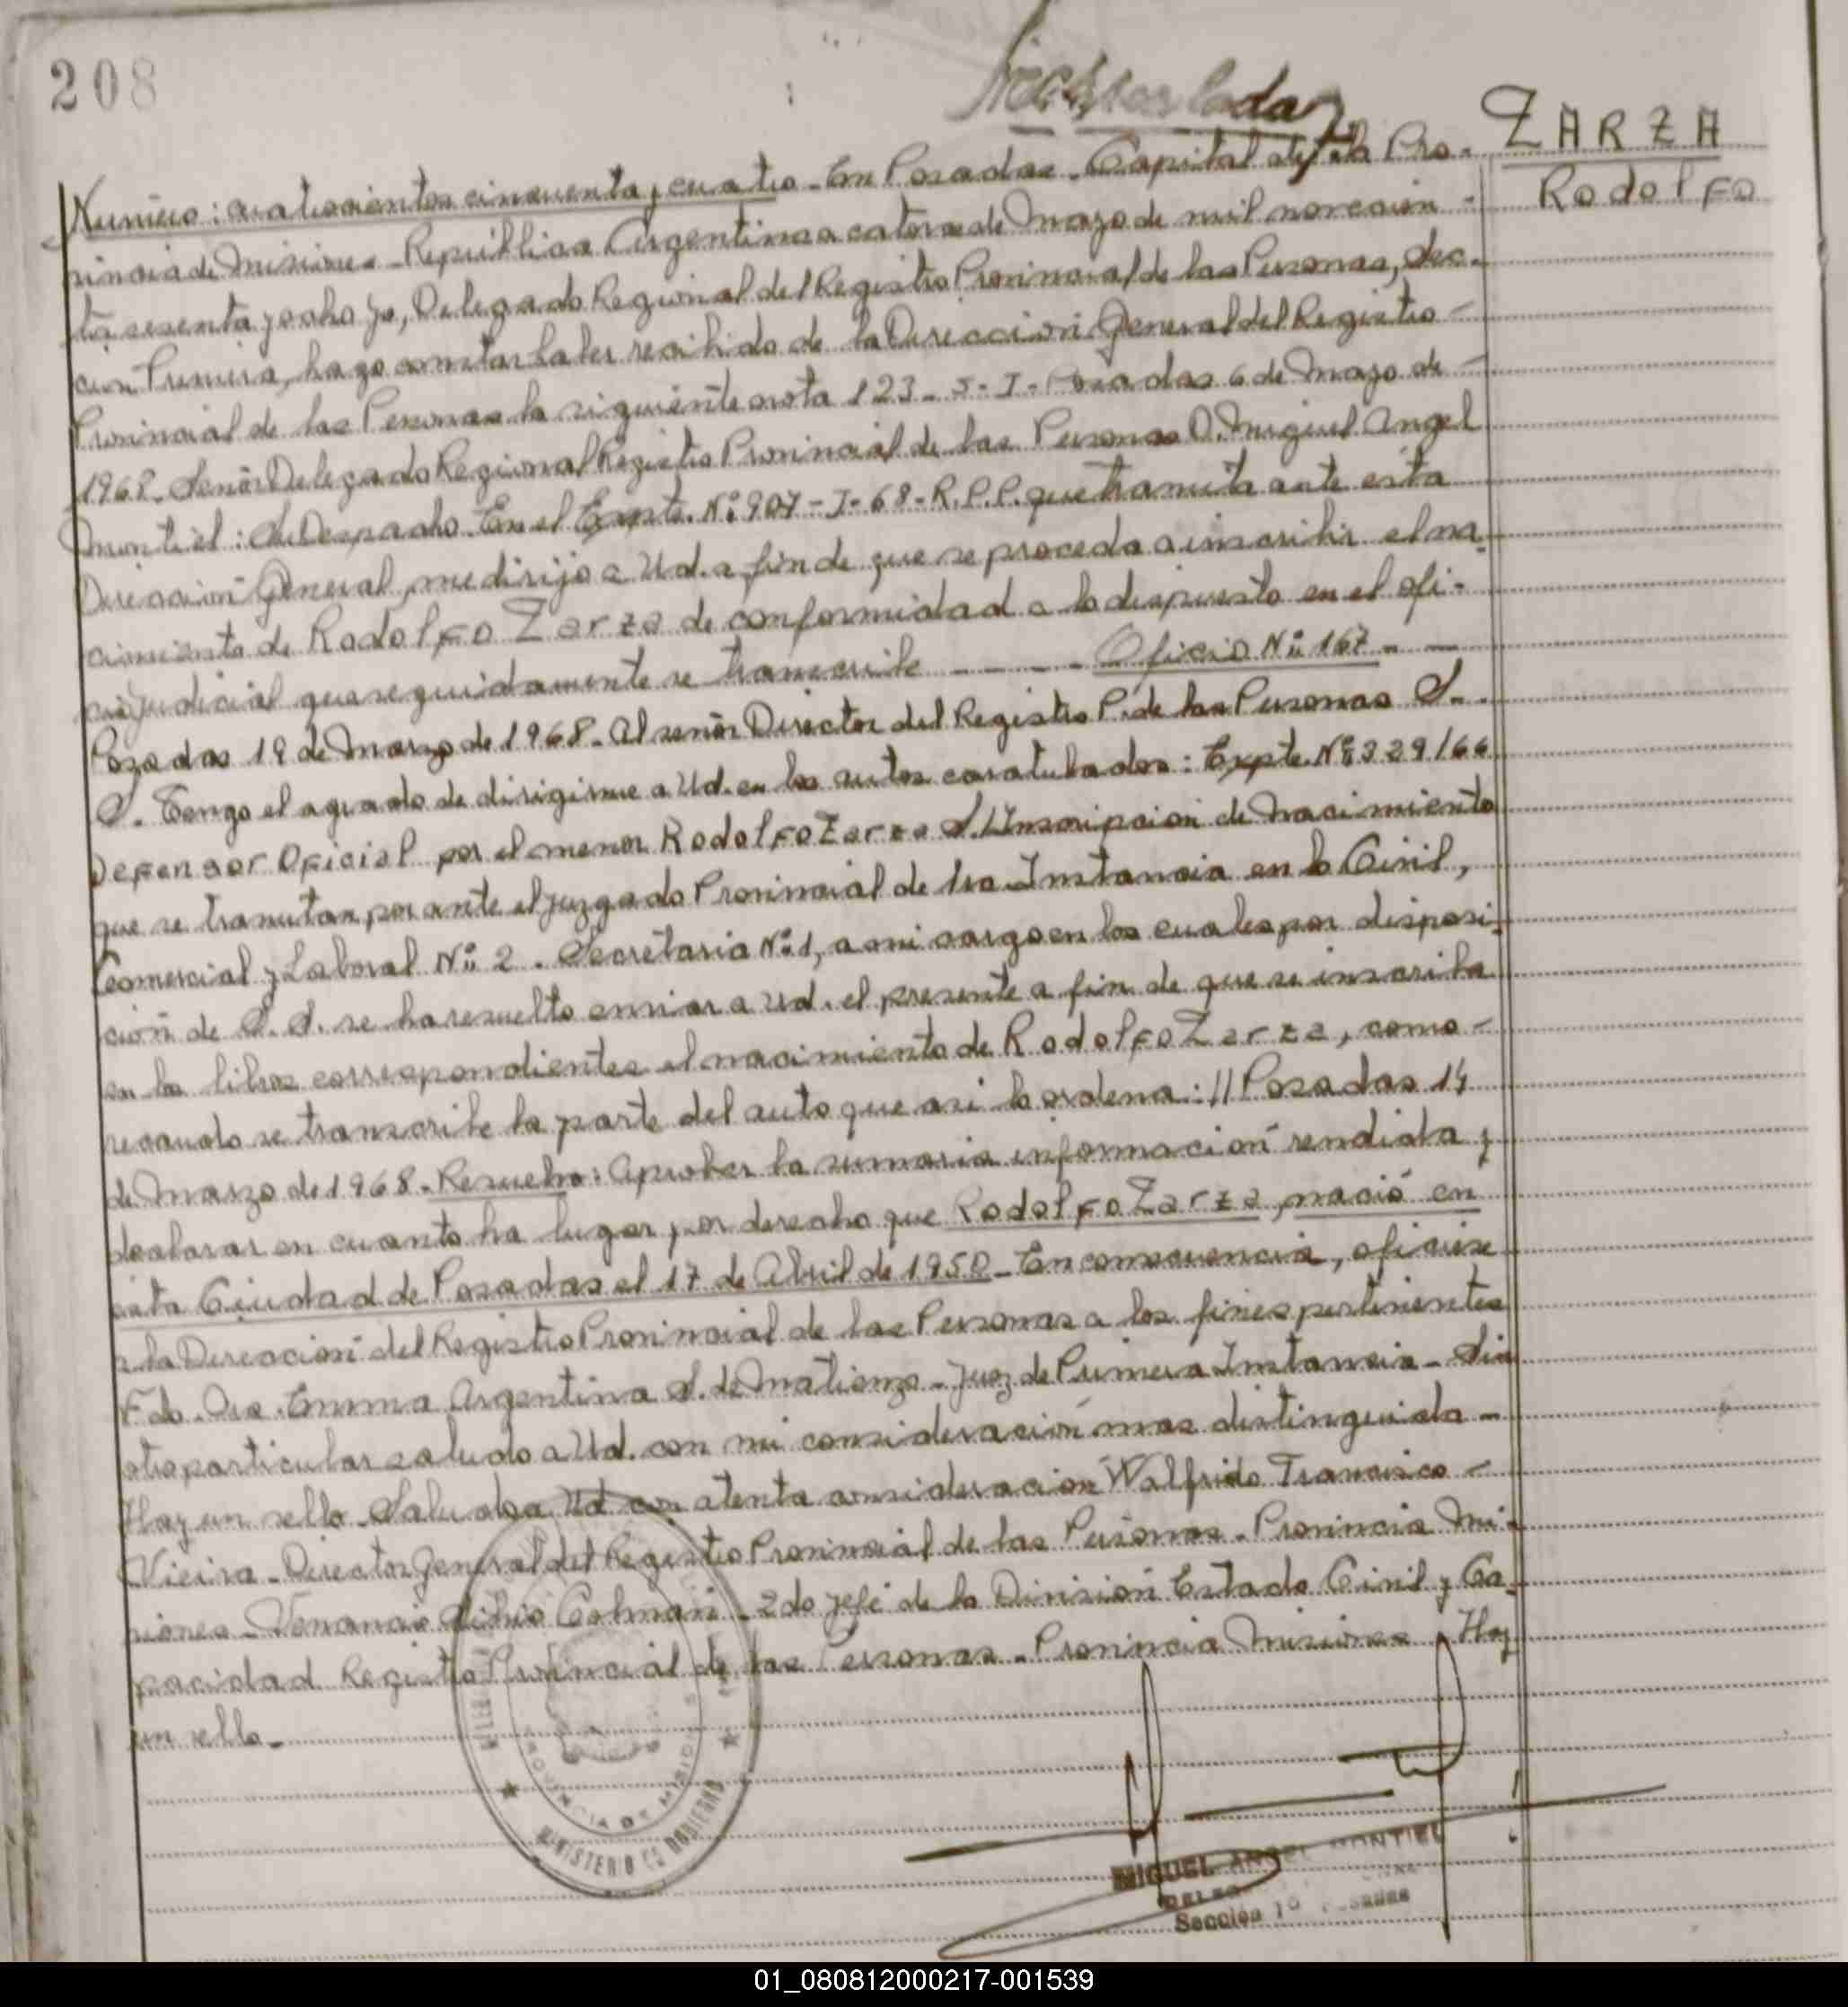 208
ZARZA
Rodolfo
Número: cuatrocientos cincuenta y cuatro - En Posadas - Capital de la Pro-
vincia de Misiones - República Argentina a catorce de Mayo de mil novecien-
tos sesenta y ocho yo, Delegado Regional del Registro Provincial de las Personas, Sec-
ción Primera, hago constar haber recibido de la Dirección General del Registro -
Provincial de las Personas la siguiente nota 123 - J - I - Posadas 6 de Mayo de -
1968 - Señor Delegado Regional Registro Provincial de las Personas D. Miguel Angel
Montiel: Su Despacho. En el Expte. Nº 907 - I - 68 - R.P.P. que tramita ante esta
Dirección General, me dirijo a Ud. a fin de que se proceda a inscribir el na-
cimiento de Rodolfo Zarza de conformidad a lo dispuesto en el ofi-
cio judicial que seguidamente se transcribe - - - - Oficio Nº 167 - -
Posadas 19 de Marzo de 1968 - Al señor Director del Registro P. de las Personas S.
D. Tengo el agrado de dirigirme a Ud. en los autos caratulados: Expte. Nº 329/66
Defensor Oficial por el menor Rodolfo Zarza S/Inscripción de Nacimiento
que se tramitan por ante el Juzgado Provincial de 1ra. Instancia en lo Civil,
Comercial y Laboral Nº 2. Secretaria Nº 1, a mi cargo en los cuales por disposi-
ción de S. S. se ha resuelto enviar a Ud. el presente a fin de que se inscriba
en los libros correspondientes el nacimiento de Rodolfo Zarza, como -
recaudo se transcribe la parte del auto que asi lo ordena: // Posadas 14
de Marzo de 1968 - Resuelvo: Aprobar la sumaria información rendida y
declarar en cuanto ha lugar por derecho que Rodolfo Zarza, nació en
esta Ciudad de Posadas el 17 de Abril de 1950 - En consecuencia, ofíciese
a la Dirección del Registro Provincial de las Personas a los fines pertinentes
Fdo. Dra. Emma Argentina S. de Matienzo - Juez de Primera Instancia - Sin
otro particular saludo a Ud. con mi consideración mas distinguida -
Hay un sello - Saluda a Ud. con atenta consideración Walfrido Francisco -
Vieira - Director General del Registro Provincial de las Personas - Provincia Mi-
siones - Venancio Colman - 2do Jefe de la División Estado Civil y Ca-
pacidad Registro Provincial de las Personas - Provincia Misiones - Hay
un sello -
PROVINCIA DE MISIONES
MINISTERIO DE GOBIERNO
MIGUEL ANGEL MONTIEL
Sección 1º Posadas
01_080812000217-001539